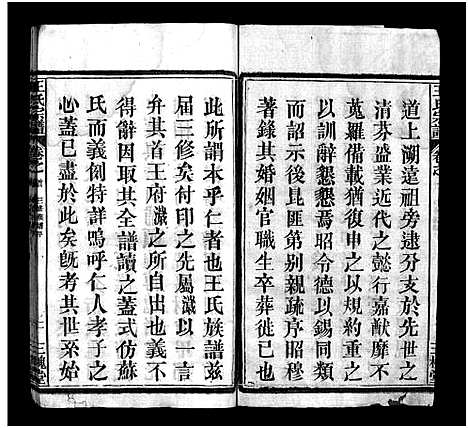 道上溯遠祖旁逮分支於先世之
清芬盛業近代之懿行嘉猷靡不
蒐羅備載猶復申之以規約重之
以訓辭懇懇焉昭令德以錫同類
而詔示後昆匪第別親疏序昭穆
著錄其婚姻官職生卒葬徙已也
此所謂本乎仁者也王氏族譜茲
届三修矣付印之先屬濊以一言
弁其首王府濊之所自出也義不
得辭因取其全譜讀之蓋式仿蘇
氏而義例特詳嗚呼仁人孝子之
心蓋已盡於此矣既考其世系始
王氏宗譜
卷之
三槐堂